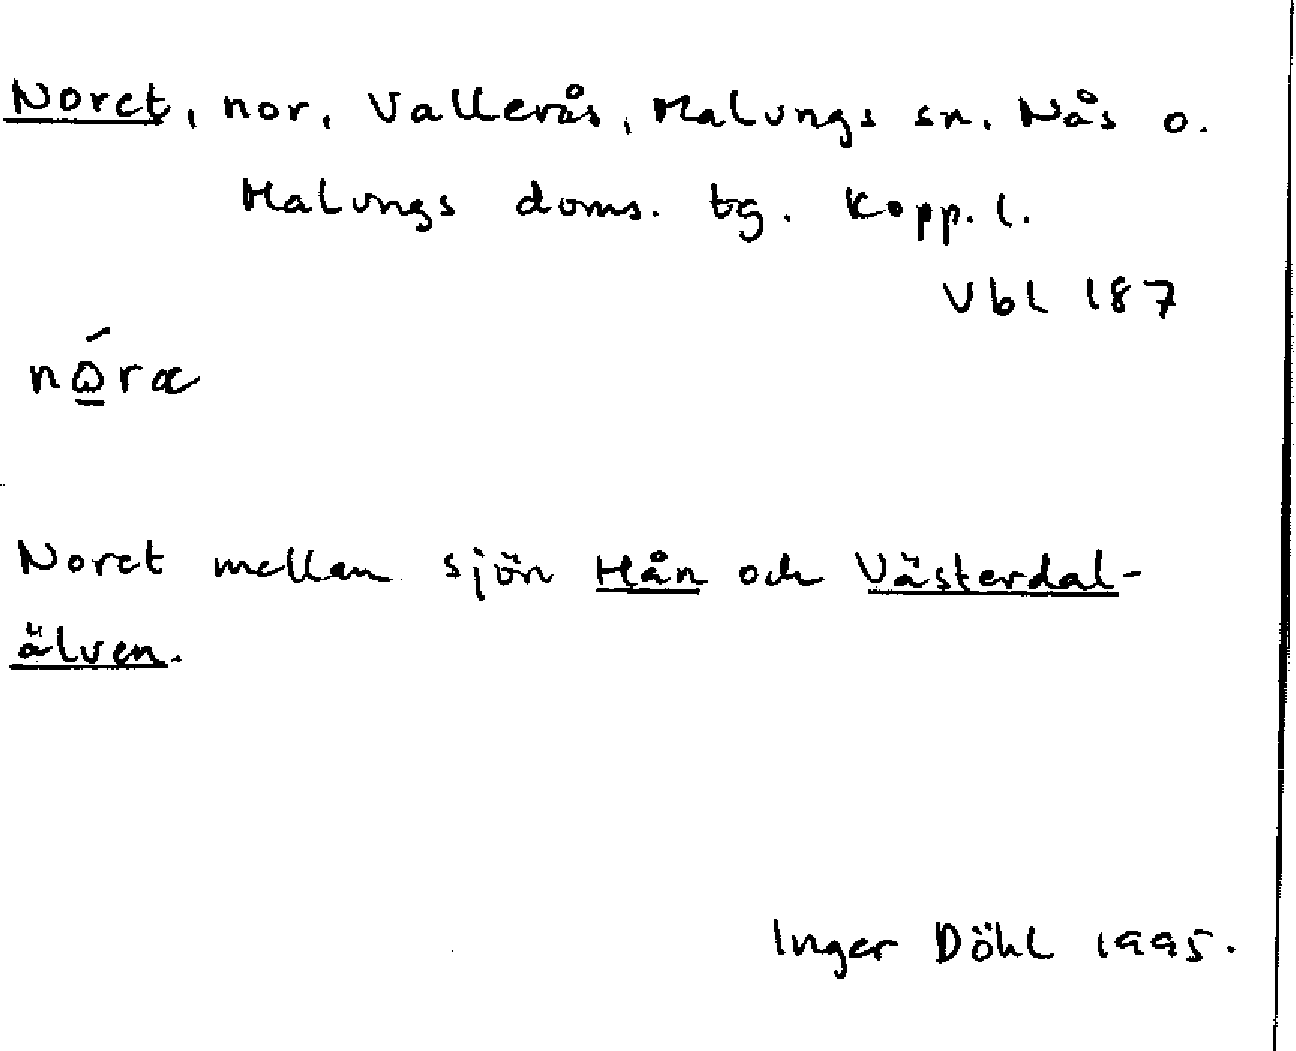 Noret, nor, Vallerås, Malungs sn. Nås o.
Malungs doms. tg. Kopp. l.
Vbl 187
Noret mellan sjön Hån och Västerdal-
älven.
Inger Döhl 1995.